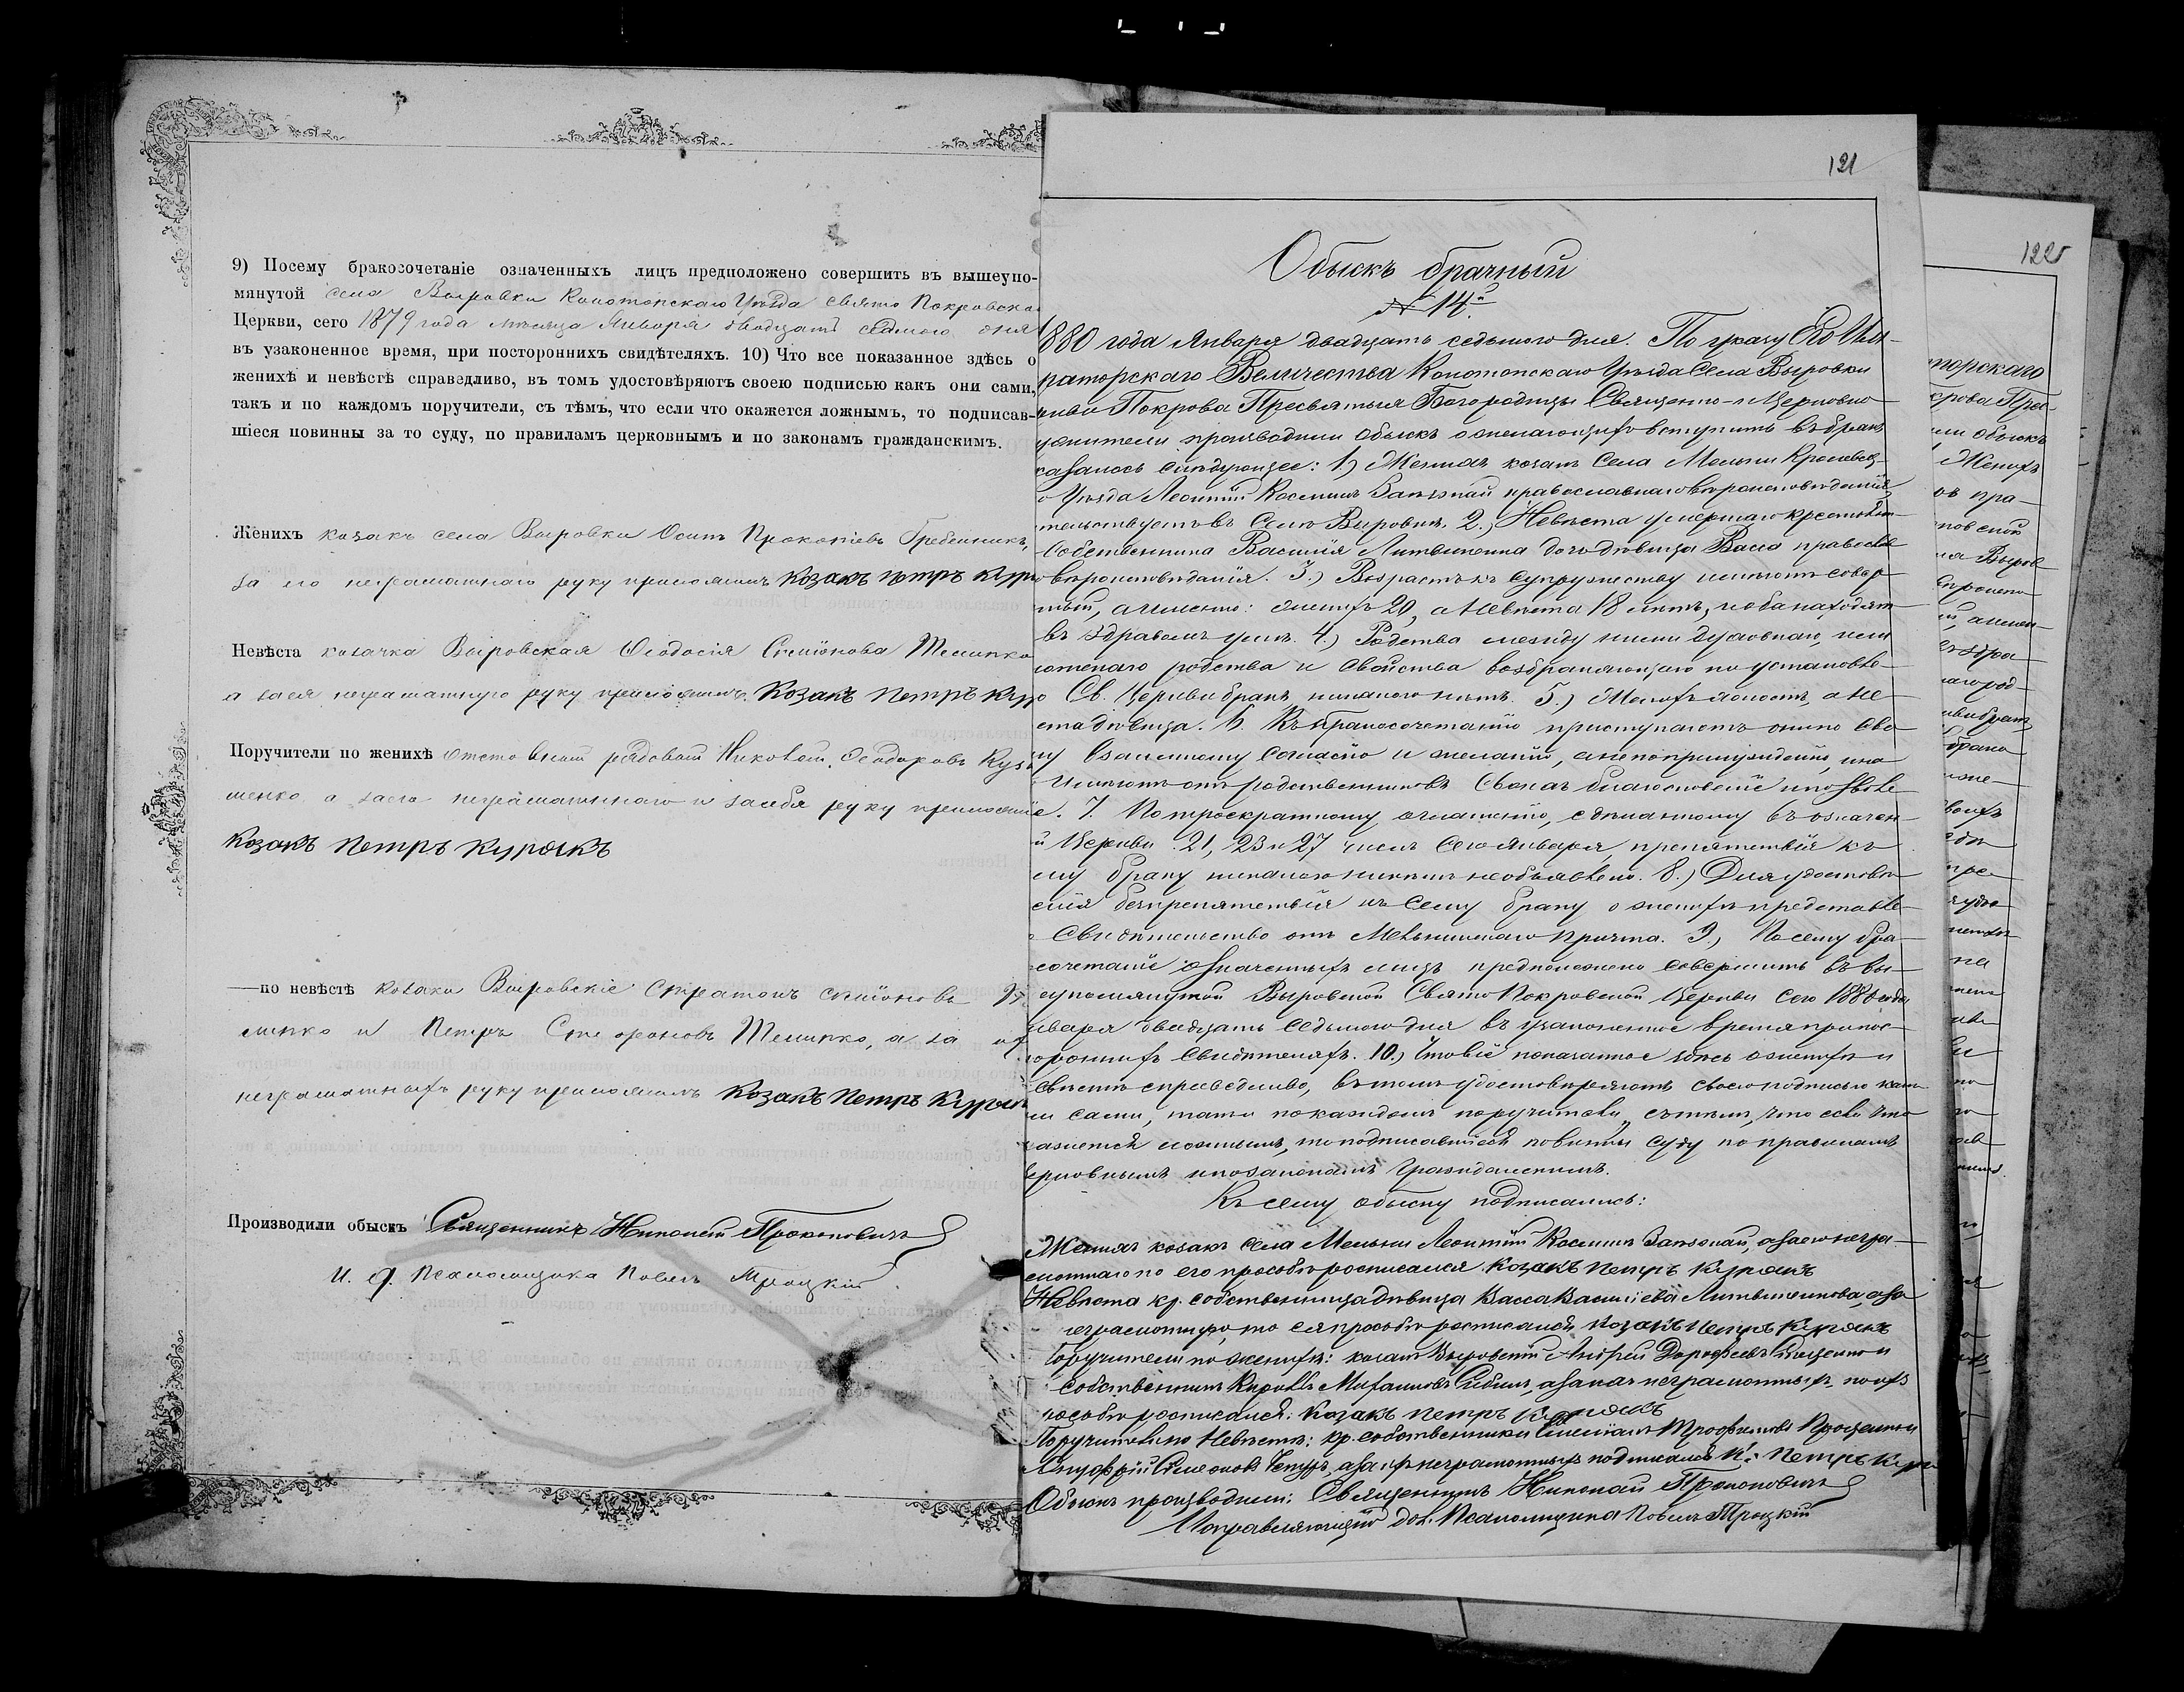 9) Посему бракосочетаніе означенныхъ лицъ предположено совершить въ вышеупо-
мянутой села Выровки Конотопскаго Уѣзда Свято Покровско
Церкви, сего 1879 года мѣсяца Января двадцать седьмого дня
въ узаконенное время, при постороннихъ свидѣтеляхъ. 10) Что все показанное здѣсь о
женихѣ и невѣстѣ справедливо, въ томъ удостовѣряютъ своею подписью какъ они сами,
такъ и по каждомъ поручители, съ тѣмъ, что если что окажется ложнымъ, то подписав-
шіеся повинны за то суду, по правиламъ церковнымъ и по законамъ гражданскимъ.
Женихъ козакъ села Выровки Осипъ Прокопіевъ Гребенникъ,
за его неграматнаго руку приложилъ Козакъ Петръ Кур
Невѣста козачка Выровская Ѳеодосія Симіонова
а за ея неграматную руку приложилъ Козакъ Петръ Кур
Поручители по женихѣ отставной рядовой Николай Ѳеодоровъ Куз
менко а за его неграматнаго и за себя руку приложи
Козакъ Петръ Курякъ
—по невѣстѣ козаки Выровскіе Стратонъ Симіоновъ
и Петръ а за
неграматныхъ руку приложилъ Козакъ Петръ Куряк
Производили обыскъ Священникъ Николай Прокоповичъ
И. д. Псаломщика Павелъ Троцкій
121
Обыскъ брачный
№ 14й
1880 года Января двадцать седьмого дня. По указу Его Им-
ператорскаго Величества Конотопскаго Уѣзда Села Выровки
Покрова Пресвятыя Богородицы Священно-и Церковно
служители производили обыскъ о желающихъ вступить въ бракъ
казалось слѣдующее: 1) Женихъ козакъ Села Мельни Кролевец-
о Уѣзда Леонтій Космичъ православнаго вѣроисповѣданія,
тельствуетъ въ Селѣ Выровкѣ. 2.) Невѣста умершаго крестьян
Собственника Василія Литвиненка дочь дѣвица Васса правосла
вѣроисповѣданія. 3.) Возрастъ къ супружеству имѣютъ совер-
ный, а именно: женихъ 20, а Невѣста 18 лѣтъ, и оба находят
въ здравомъ умѣ. 4.) Родства между ними духовнаго, или
плотскаго родства и свойства возбраняющаго по установле-
Св. Церкви бракъ, никакого нѣтъ. 5.) Женихъ холостъ, а Не-
ста дѣвица. 6. Къ бракосочетанію приступаютъ они по сво
му взаимному согласію и желанію, а не по принужденію, и на
имѣютъ отъ родственниковъ своихъ благословеніе и позволе
е. 7. По троекратному оглашенію, сдѣланному въ означен-
й Церкви 21, 23 и 27 числъ сего Января, препятствія къ
ему браку никакого никѣмъ не объявлено. 8.) Для удостовѣ
енія безпрепятствія къ сему браку о женихѣ представле-
Свидѣтельство отъ Мельнинскаго Причта. 9.) По сему бра-
сочетаніе означенныхъ лицъ предположено совершить въ вы-
еупомянутой Выровской Свято Покровской Церкви Сего 1880 года
нваря двадцать седьмого дня въ узаконенное время при пос-
ороннихъ свидѣтеляхъ. 10.) Что всіе показанное здѣсь о женихѣ и
евѣстѣ справедливо, въ томъ удостовѣряютъ своею подписью какъ
ни сами, такъ и по каждомъ поручители, съ тѣмъ, что если что
кажется ложнымъ, то подписавшіеся повинны суду по правиламъ
ерковнымъ и по законамъ Гражданскимъ.
Къ сему обыску подписались:
Женихъ козакъ Села Мельни Леонтій Космичъ а за его негра-
мотнаго по его прозьбѣ росписался Козакъ Петръ Курякъ
Невѣста кр. собственница дѣвица Васса Василіева Литвиненкова, а за
неграмотную, по ея прозьбѣ росписался Козакъ Петръ Курякъ
Поручители по женихѣ: козакъ Выровскій Андрей Дорофеевъ и
собственникъ Кириллъ а за нихъ неграмотныхъ, по ихъ
прозьбѣ росписался: Козакъ Петръ Курякъ
Поручители по Невѣстѣ: кр. собственники Симеонъ Трофимовъ Проценко и
а за ихъ неграмотныхъ подписался К: Петръ Кур
Обыскъ производили: Священникъ Николай Прокоповичъ
Исправляющій дол. Псаломщика Павелъ Троцкій
122